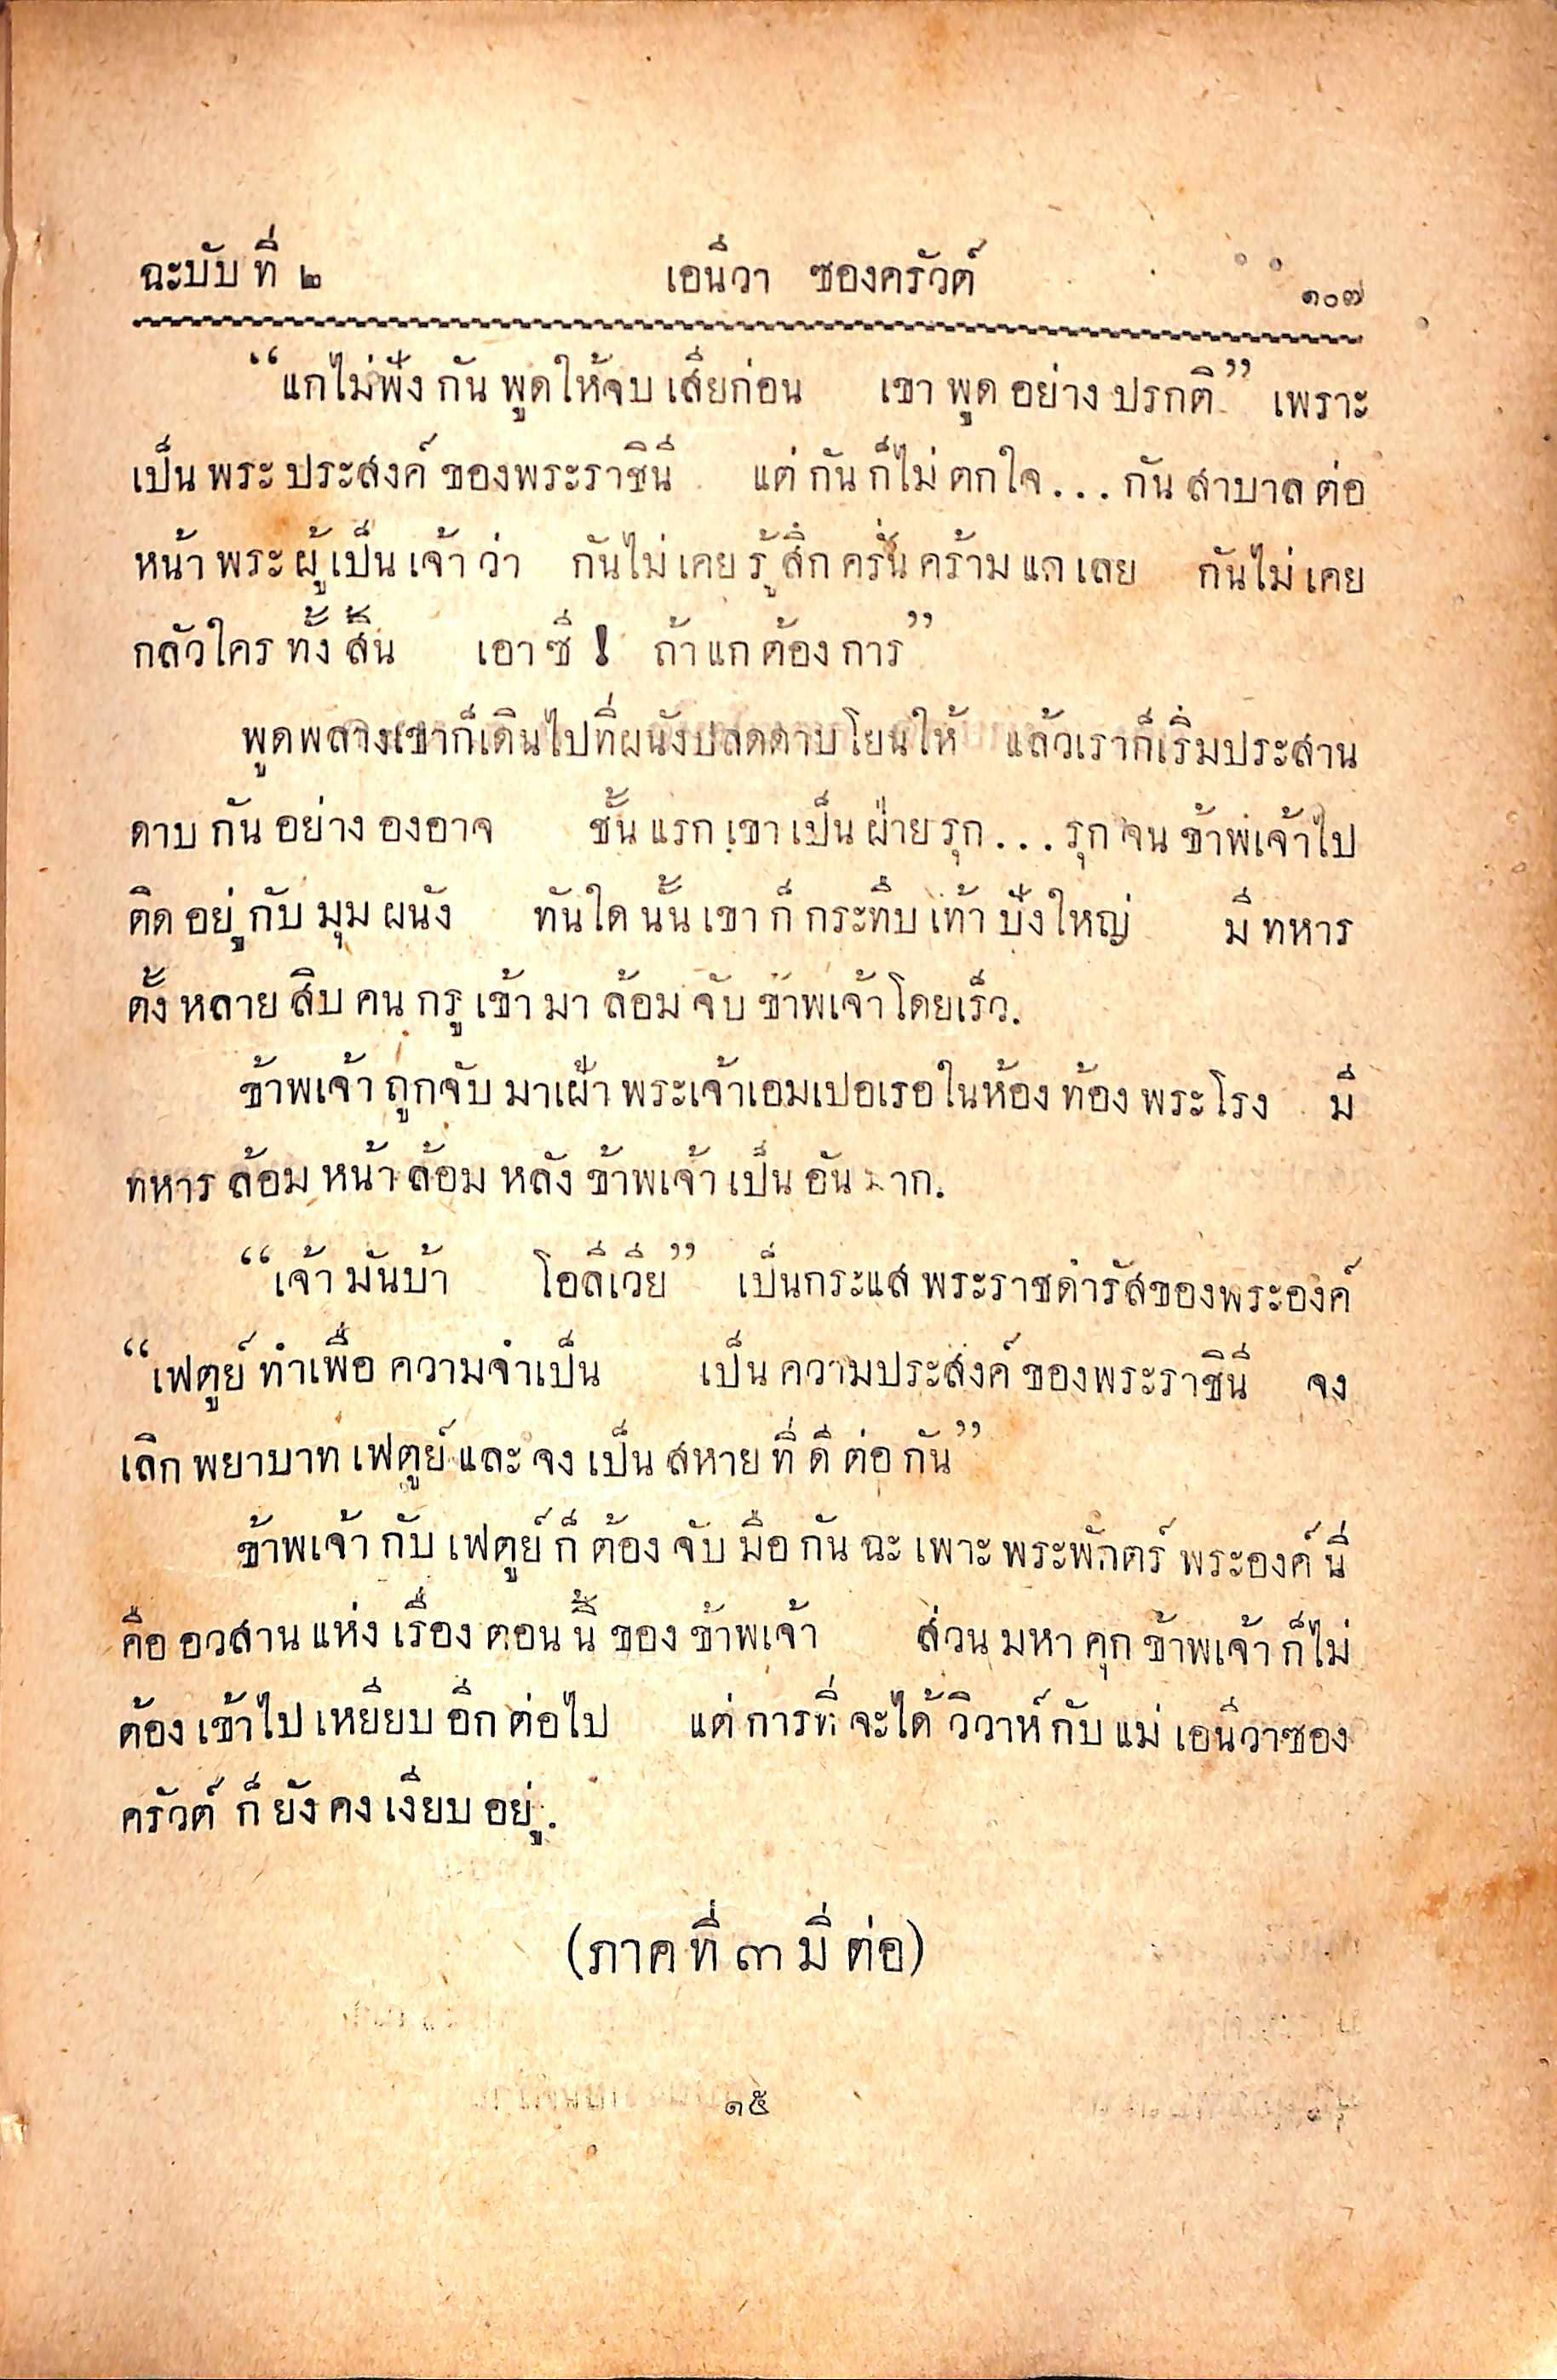 ฉะบับที่ ๒ เอนีวา ซองครัวต์ ๑๐๗
“แกไม่ฟังกันพูดให้จบเสียก่อน เขาพูดอย่างปรกติ” เพราะ
เป็นพระประสงค์ของพระราชินี แต่กันก็ไม่ตกใจ...กันสาบาลต่อ
หน้าพระผู้เป็นเจ้าว่า กันไม่เคยรู้สึกครั่นคร้ามแกเลย กันไม่เคย
กลัวใครทั้งสิ้น เอาซี ! ถ้าแกต้องการ”
พูดพลางเขาก็เดินไปที่ผนังปลดดาบโยนให้ แล้วเราก็เริ่มประสาน
ดาบกันอย่างองอาจ ชั้นแรกเขาเป็นฝ่ายรุก...รุกจนข้าพเจ้าไป
ติดอยู่กับมุมผนัง ทันใดนั้นเขาก็กระทืบเท้าปังใหญ่ มีทหาร
ตั้งหลายสิบคนกรูเข้ามาล้อมจับข้าพเจ้าโดยเร็ว.
ข้าพเจ้าถูกจับมาเฝ้าพระเจ้าเอมเปอเรอในห้องท้องพระโรง มี
ทหารล้อมหน้าล้อมหลังข้าพเจ้าเป็นอันมาก.
“เจ้ามันบ้า โอลีเวีย” เป็นกระแสพระราชดำรัสของพระองค์
“เฟตูย์ทำเพื่อความจำเป็น เป็นความประสงค์ของพระราชินี จง
เลิกพยาบาทเฟตูย์และจงเป็นสหายที่ดีต่อกัน”
ข้าพเจ้ากับเฟตูย์ก็ต้องจับมือกันฉะเพาะพระพักตร์พระองค์ นี่
คืออวสานแห่งเรื่องตอนนี้ของข้าพเจ้า ส่วนมหาคุกข้าพเจ้าก็ไม่
ต้องเข้าไปเหยียบอีกต่อไป แต่การที่จะได้วิวาห์กับแม่เอนีวาซอง
ครัวต์ ก็ยังคงเงียบอยู่.
(ภาคที่ ๓ มีต่อ)
๑๕